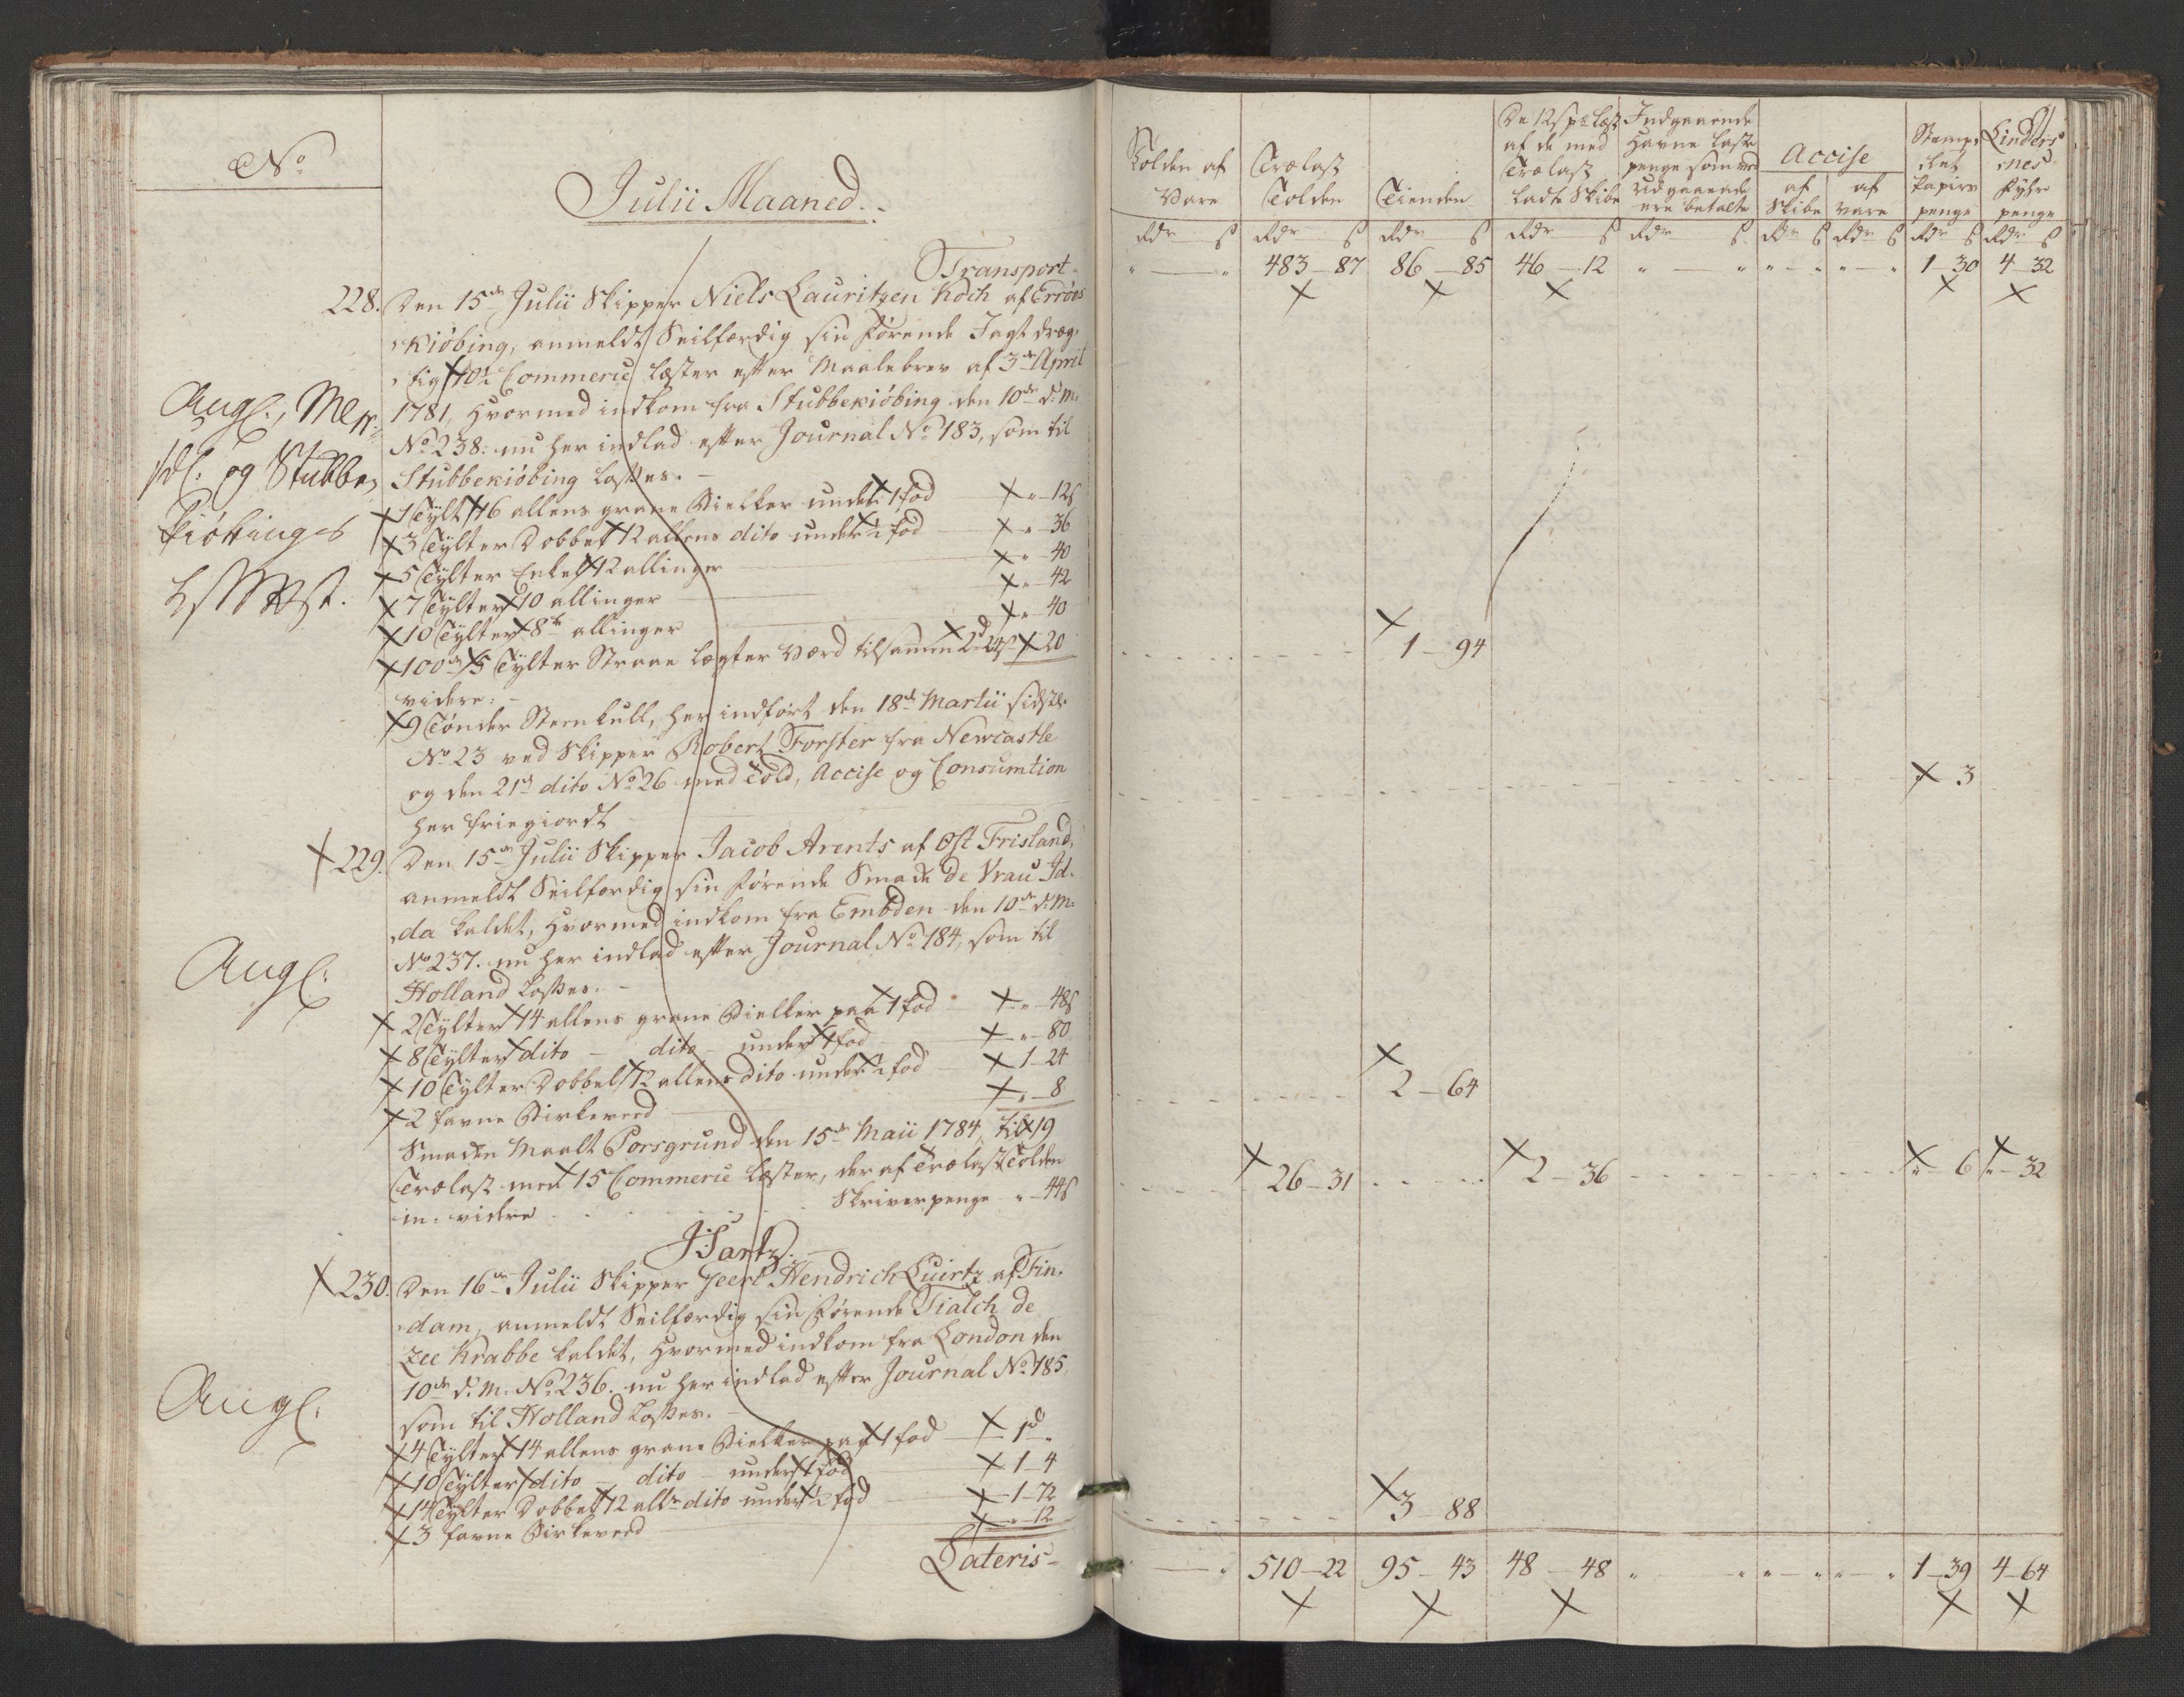 No
Julii Maaned.
Transport
228. Den 15de Julii Skipper Niels Lauritzen Koch af Erröes
kiöbing, anmeldt Seilfærdig sin førende Jagt dræg
tig 10½ Commerce Læster efter Maalebrev af 3de April
1781, hvormed indkom fra Stubbekiöbing den 10de d: M:
No 238. nu her indlad efter Journal No 183, som til
Stubbekiöbing losses.
1 Tylt 16 allens grane Dielker under 1 fod " 12 s
3 Tylter Dobbelt 12 allens dito under ½ fod " 36
5 Tylter Enkelt 12 allinger " 40
7 Tylter 10 allinger " 42
10 Tylter 8te allinger " 40
100de 5 Tylter Straae Legter værd tilsamen 2 d 24 s 20
videre.
9 Tønder Steenkull, her indført den 18de Martii sidstl.
No 23 ved Skipper Robert Forster fra Newcastle
og den 21de dito No 26 med Told, Accise og Consumtion
her friegiordt
Angl:, Mel
og Stubbe
kiöbinges
229. Den 15de Julii Skipper Jacob Arents af Øst Frisland,
anmeldt Seilfærdig sin førende Smack de Vrau Id
da kaldet, hvormed indkom fra Embden den 10de d: M:
No 237. nu her indlad efter Journal No 184, som til
Holland losses.
2 Tylter 14 allens grane Dielker paa 1 fod " 48 s
8 Tylter dito - dito - under 1 fod " 80
10 Tylter Dobbelt 12 allens dito under ½ fod 1 - 24
2 favne Birkeved " 8
Smacken Maalt Porsgrund den 15de Maii 1784, til 19
Trælast med 15 Commerce Læster, der af Trælast Tolden
m: videre Skriverpenge " 44 s
J Hartz.
Angl:
230. Den 16de Julii Skipper Geert Hendrich Luirtz af Fin
dam, anmeldt Seilfærdig sin førende Tialch de
Zee Krabbe kaldet, hvormed indkom fra London den
10de d: M: No 236. nu her indlad efter Journal No 185,
som til Holland losses.
4 Tylter 14 allens grane Dielker paa 1 fod 1 d "
10 Tylter dito - dito - under 1 fod 1 - 4
14 Tylter Dobbelt 12 all: dito under ½ fod 1 - 72
3 favne Birkeved " 12
Lateris
Angl:
Tolden af Vare
Trælast Tolden
Tienden
De 12 s pr Læst af de med Trælast ladte Skibe
Indgaaende Havne Laste penge som ved udgaaende ere betalte
Accise
af Skibe
af vare
Stemp let Papirs penge
Linders nes Fyhr penge
Rdr s Rdr s Rdr s Rdr s Rdr s Rdr s Rdr s Rdr s Rdr s
" " 483 - 87 86 - 85 46 - 12 " " " " " " 1 - 30 4 - 32
1 - 94
" 3
2 - 64
26 - 31 2 - 36 " 6 " 32
3 - 88
" 510 - 22 95 - 43 48 - 48 " " " " " " 1 - 39 4 - 64